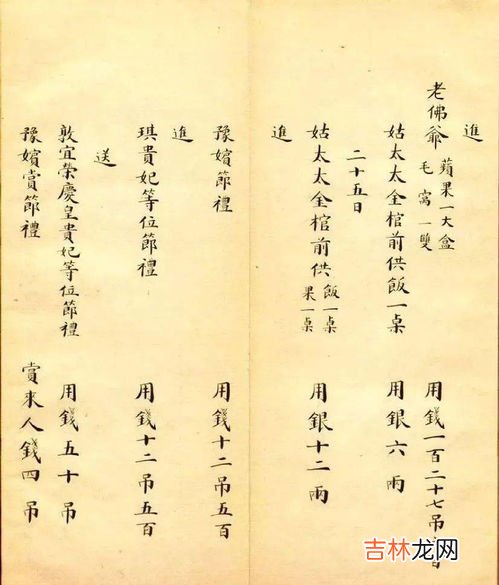 進
老佛爺 蘋果一大盒 毛窩一雙 用錢一百二十七吊
姑太太仝棺前供飯一桌 用銀六兩
二十五日
姑太太仝棺前供 飯一桌 果一桌 用銀十二兩
進
豫嬪節禮 用錢十二吊五百
進
琪貴妃等位節禮 用錢十二吊五百
送
敦宜榮慶皇貴妃等位節禮 用錢五十吊
豫嬪賞節禮 賞來人錢四吊
吉林龙网